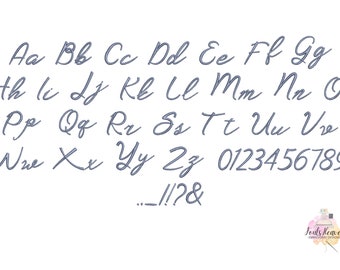 Aa Bb Cc Dd Ee Ff Gg
h Ii Jj Kk Ll Mm Nn O
Pp Qq Rr Ss Tt Uu Vv
Ww Xx Yy Zz 0123456789
.,_!!?&